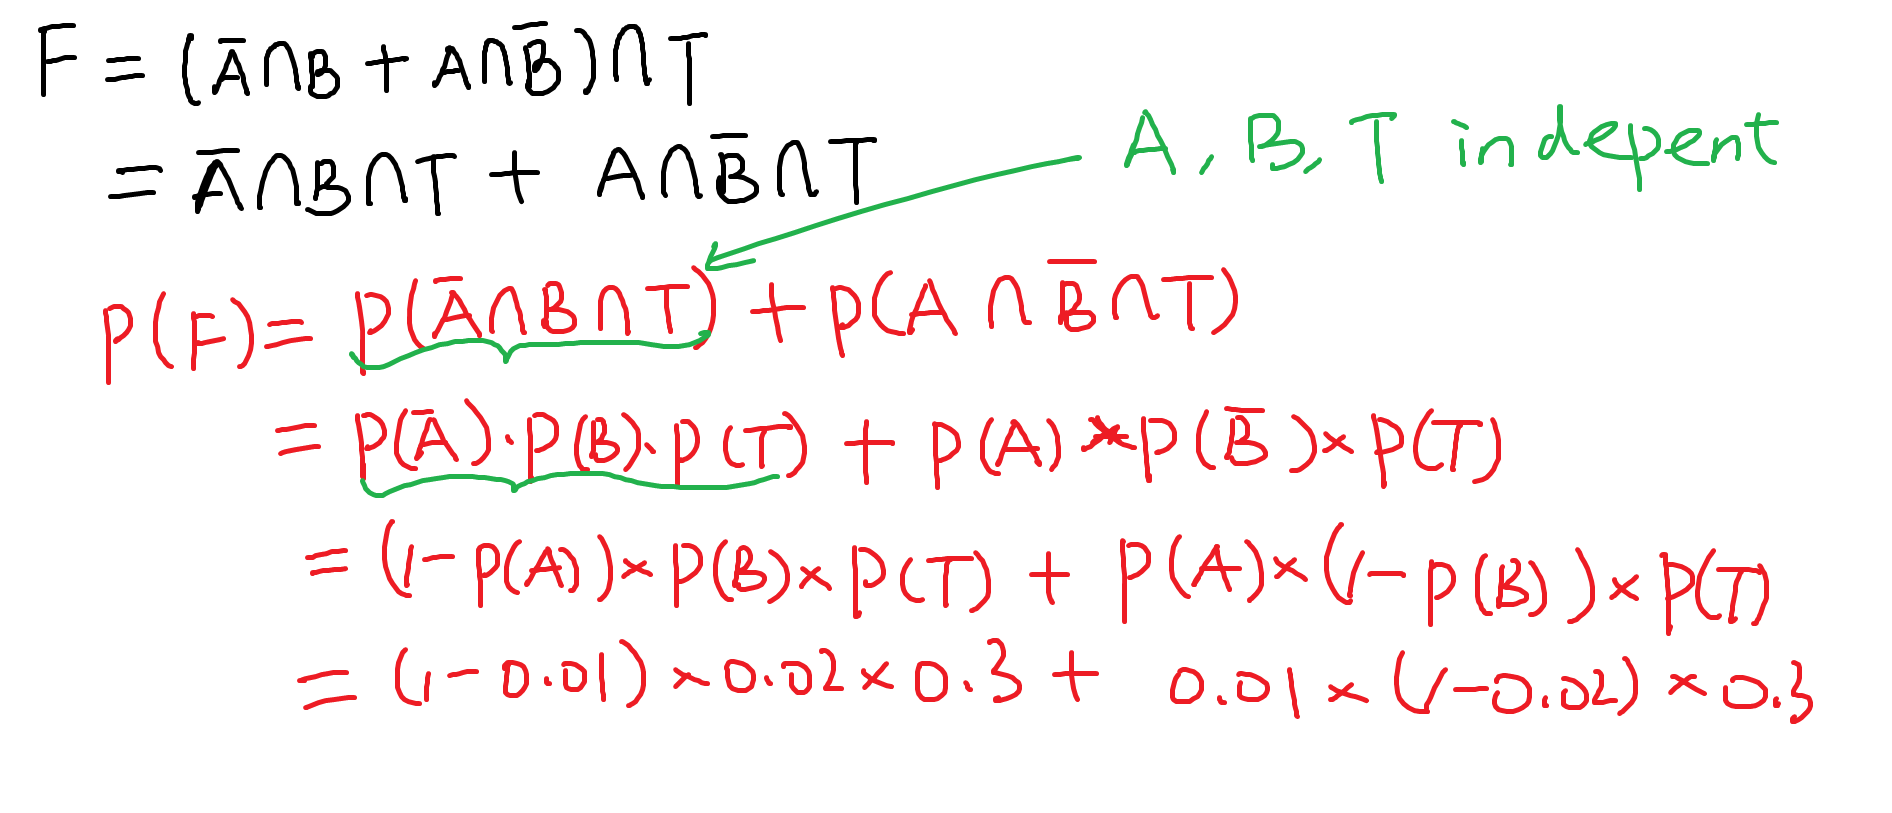 F = (A̅∩B + A∩B̅)∩T
= A̅∩B∩T + A∩B̅∩T
A, B, T indepent
P(F) = P(A̅∩B∩T) + P(A∩B̅∩T)
= P(A̅)·P(B)·P(T) + P(A)×P(B̅)×P(T)
= (1-P(A))×P(B)×P(T) + P(A)×(1-P(B))×P(T)
= (1-0.01)×0.02×0.3 + 0.01×(1-0.02)×0.3